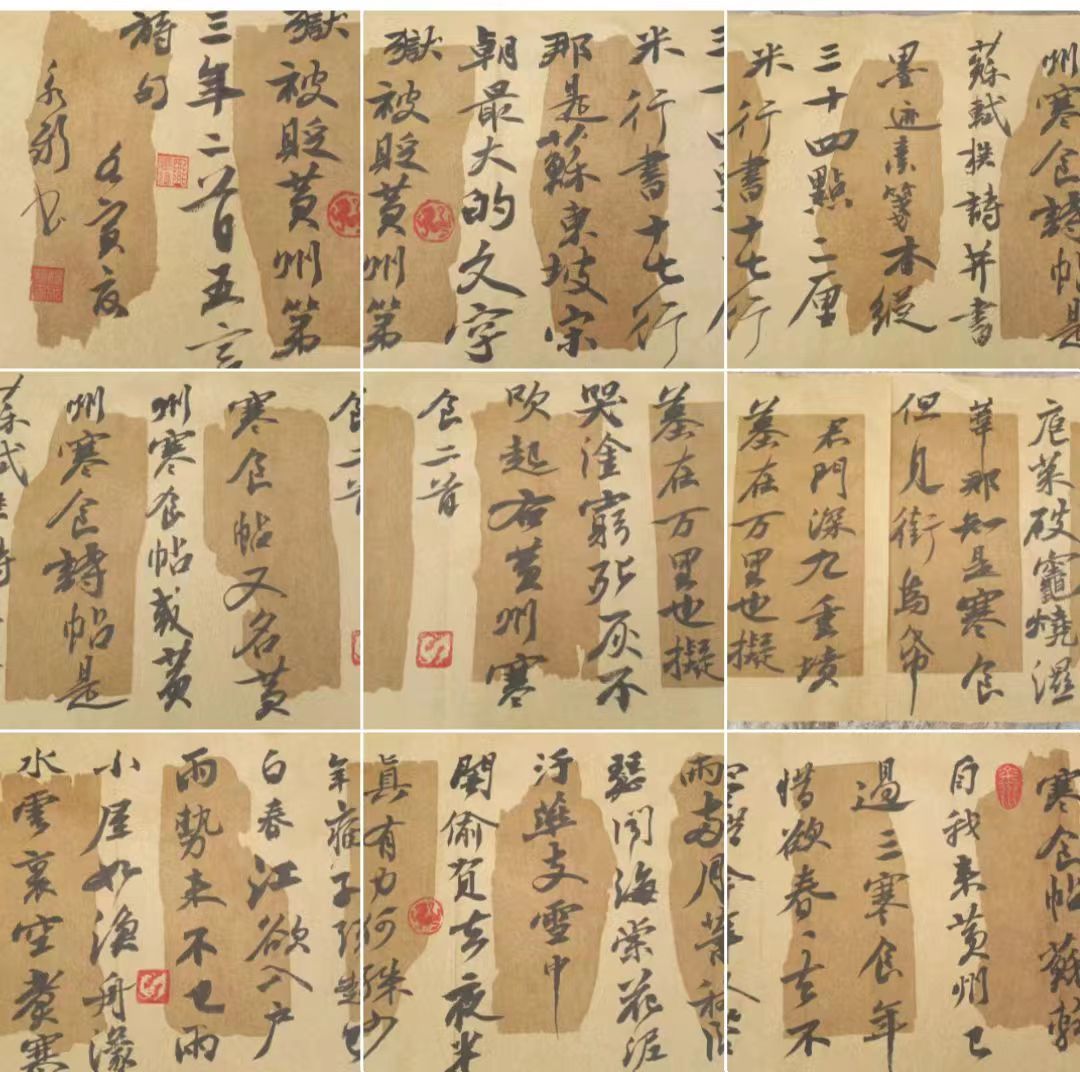 寒食帖蘇軾
自我來黃州已
過三寒食年
惜欲春〻去不
瑟聞海棠花泥
汙燕支雪中
闇偷負去夜半
真有力何殊少
白春江欲入户
雨勢来不已雨
小屋如漁舟濛
水雲裏空煮寒
庖菜破竈燒濕
葦那知是寒食
但見銜烏帋
君門深九重墳
墓在万里也擬
墓在万里也擬
哭塗窮死灰不
吹起右黃州寒
食二首
食二首
寒食帖又名黃
州寒食帖或黃
州寒食詩帖是
州寒食詩帖是
蘇軾撰詩并書
墨迹素箋本縱
三十四點二厘
米行書十七行
米行書十七行
那是蘇東坡宋
朝最大的文字
獄被貶黃州第
獄被貶黃州第
三年二首五言
詩句
壬寅夏